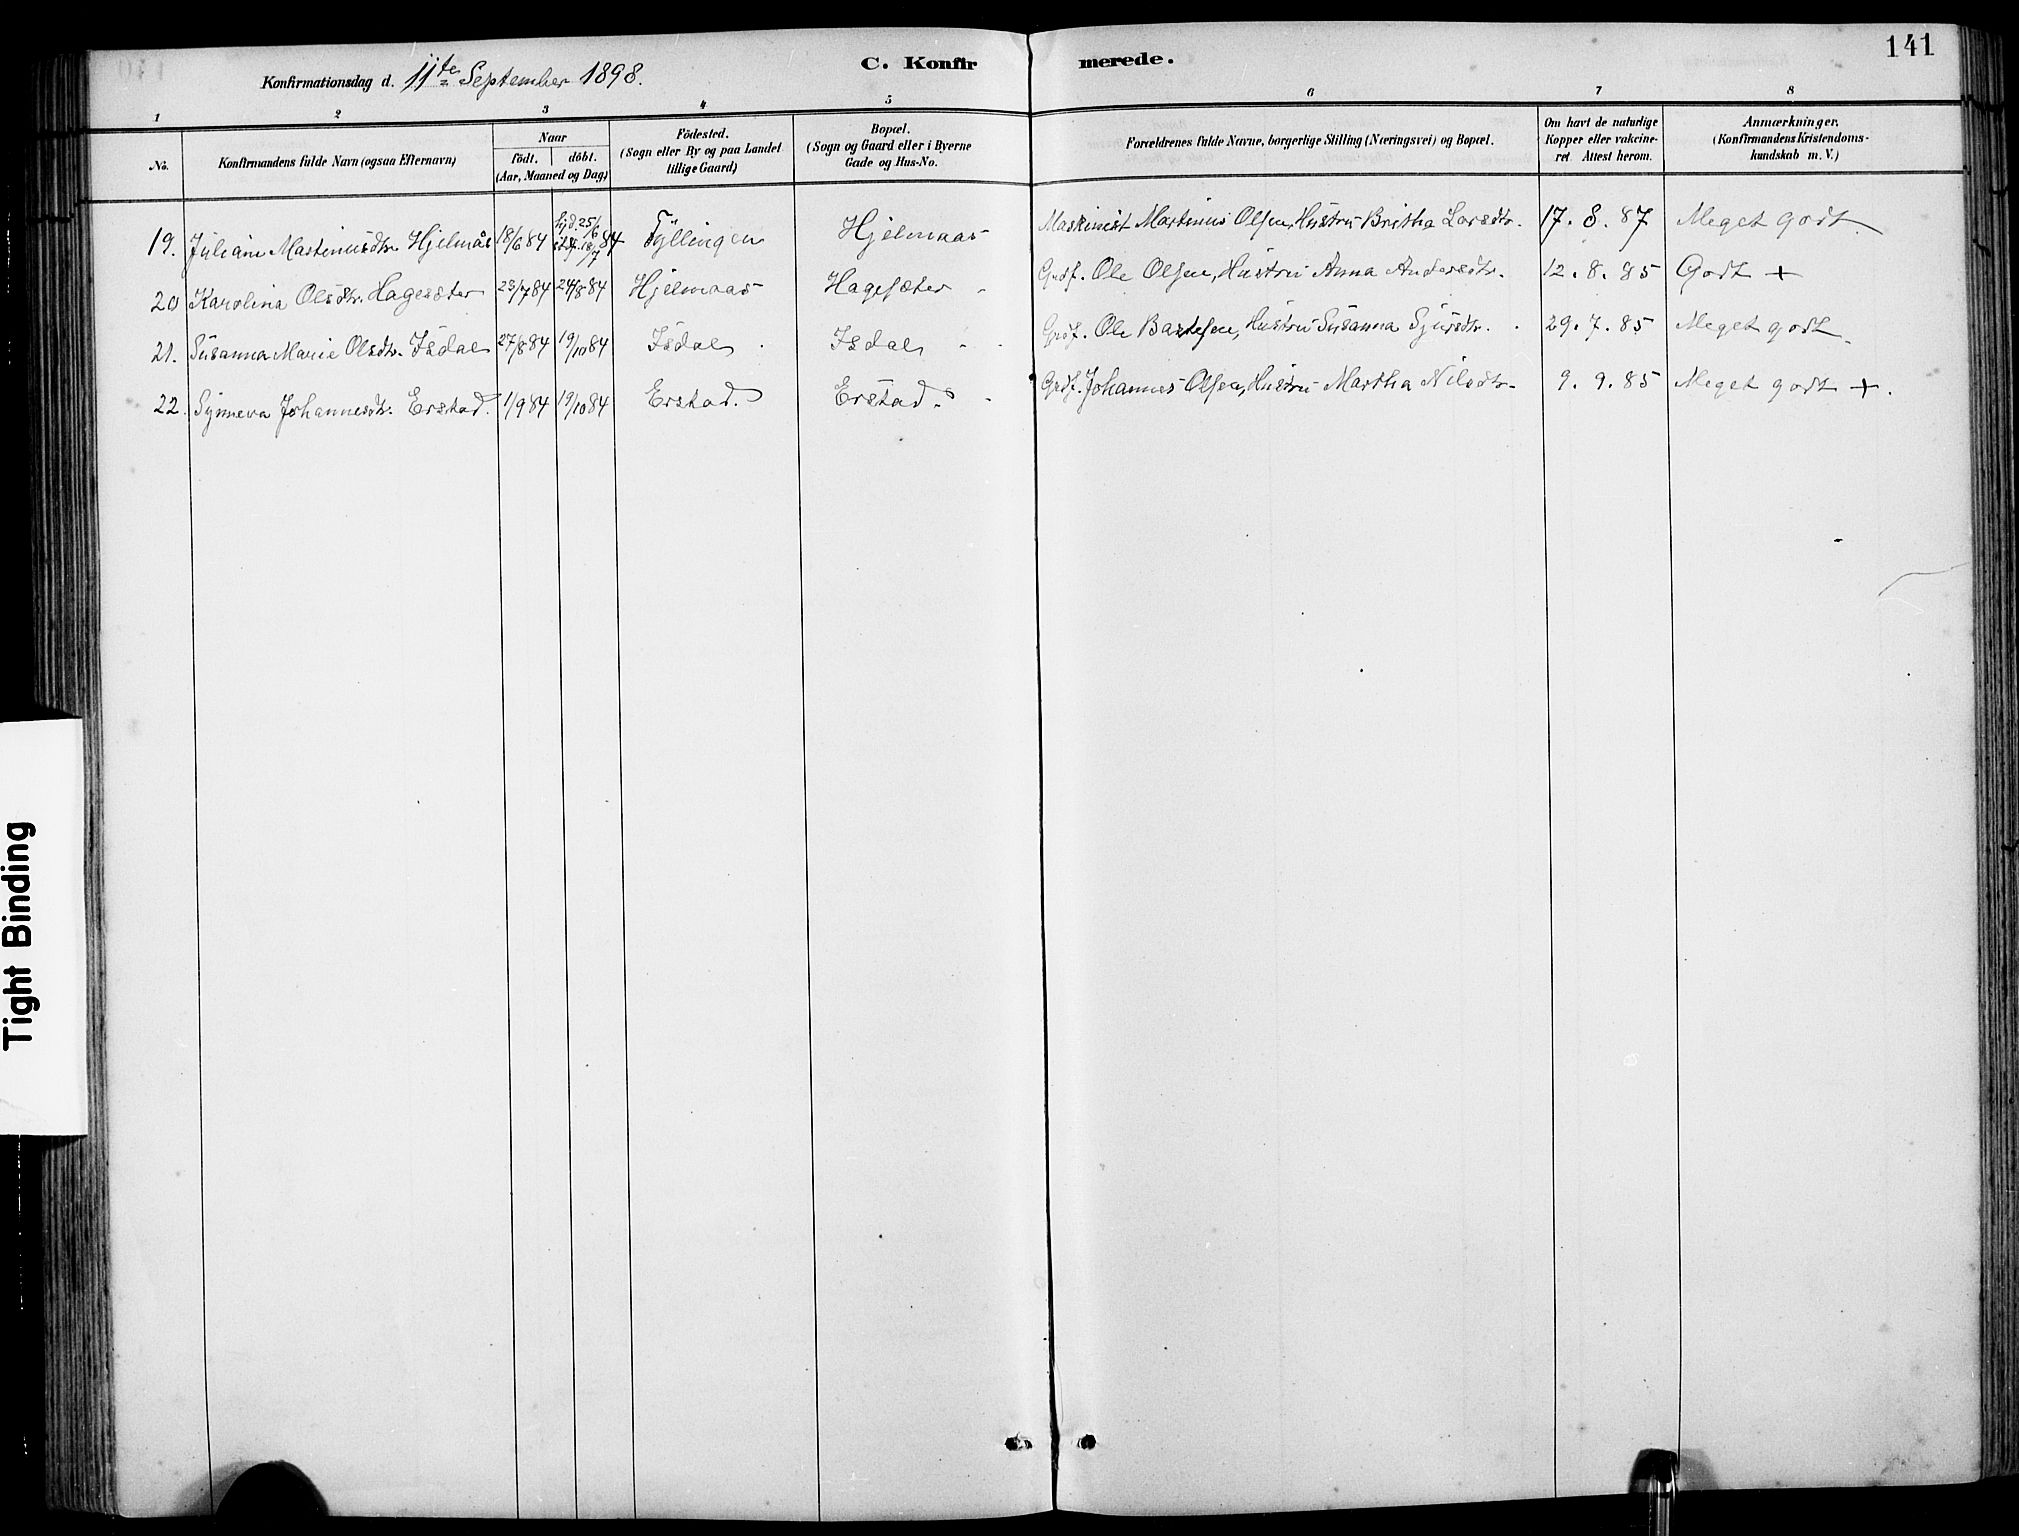 141
Konfirmationsdag d. 11te September 1898.
C. Konfirmerede.
1 2 3 4 5 6 7 8
No.
Konfirmandens fulde Navn (ogsaa Efternavn)
Naar
födt. döbt.
(Aar, Maaned og Dag)
Födested.
(Sogn eller By og paa Landet
tillige Gaard)
Bopæl.
(Sogn og Gaard eller i Byerne
Gade og Hus-No.
Forældrenes fulde Navne, borgerlige Stilling (Næringsvei) og Bopæl.
Om havt de naturlige
Kopper eller vakcine-
ret. Attest herom.
Anmærkninger.
(Konfirmandens Kristendoms-
kundskab m. V.)
19. Juliane Martinusdtr. Hjelmås 18/6 84 hjd. 25/6 st.f. 18/7 84 Fyllingen Hjelmaas Maskinist Martinus Olsen, Hustru Britha Larsdtr. 17. 8. 87 Meget godt.
20 Karolina Olsdtr. Hagesæter 23/7 84 24/8 84 Hjelmaas Hagesæter Grdf. Ole Olsen, Hustru Anna Andersdtr. 12. 8. 85 Godt +
21. Susanna Marie Olsdtr. Isdal 27/8 84 19/10 84 Isdal Isdal Grdf. Ole Hustru Susanna Sjursdtr. 29. 7. 85 Meget godt.
22. Synneva Johannesdtr. Erstad. 1/9 84 19/10 84 Erstad. Erstad. Grdf. Johannes Olsen, Hustru Martha Nilsdtr. 9. 9. 85 Meget godt +.
Tight Binding